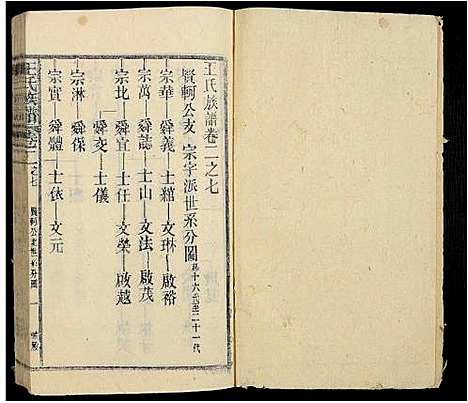 王氏族譜卷二之七
賢軻公支 宗字派世系分圖 十六代至二十一代
宗華 舜義 士綰 文琳 啟裕
宗萬 舜誌 士山 文法 啟茂
宗北 舜宜 士任 文榮 啟越
舜交 士儀
宗淋 舜保
宗實 舜體 士依 文元
王氏族譜 卷二之七 賢軻公支世系分圖 一